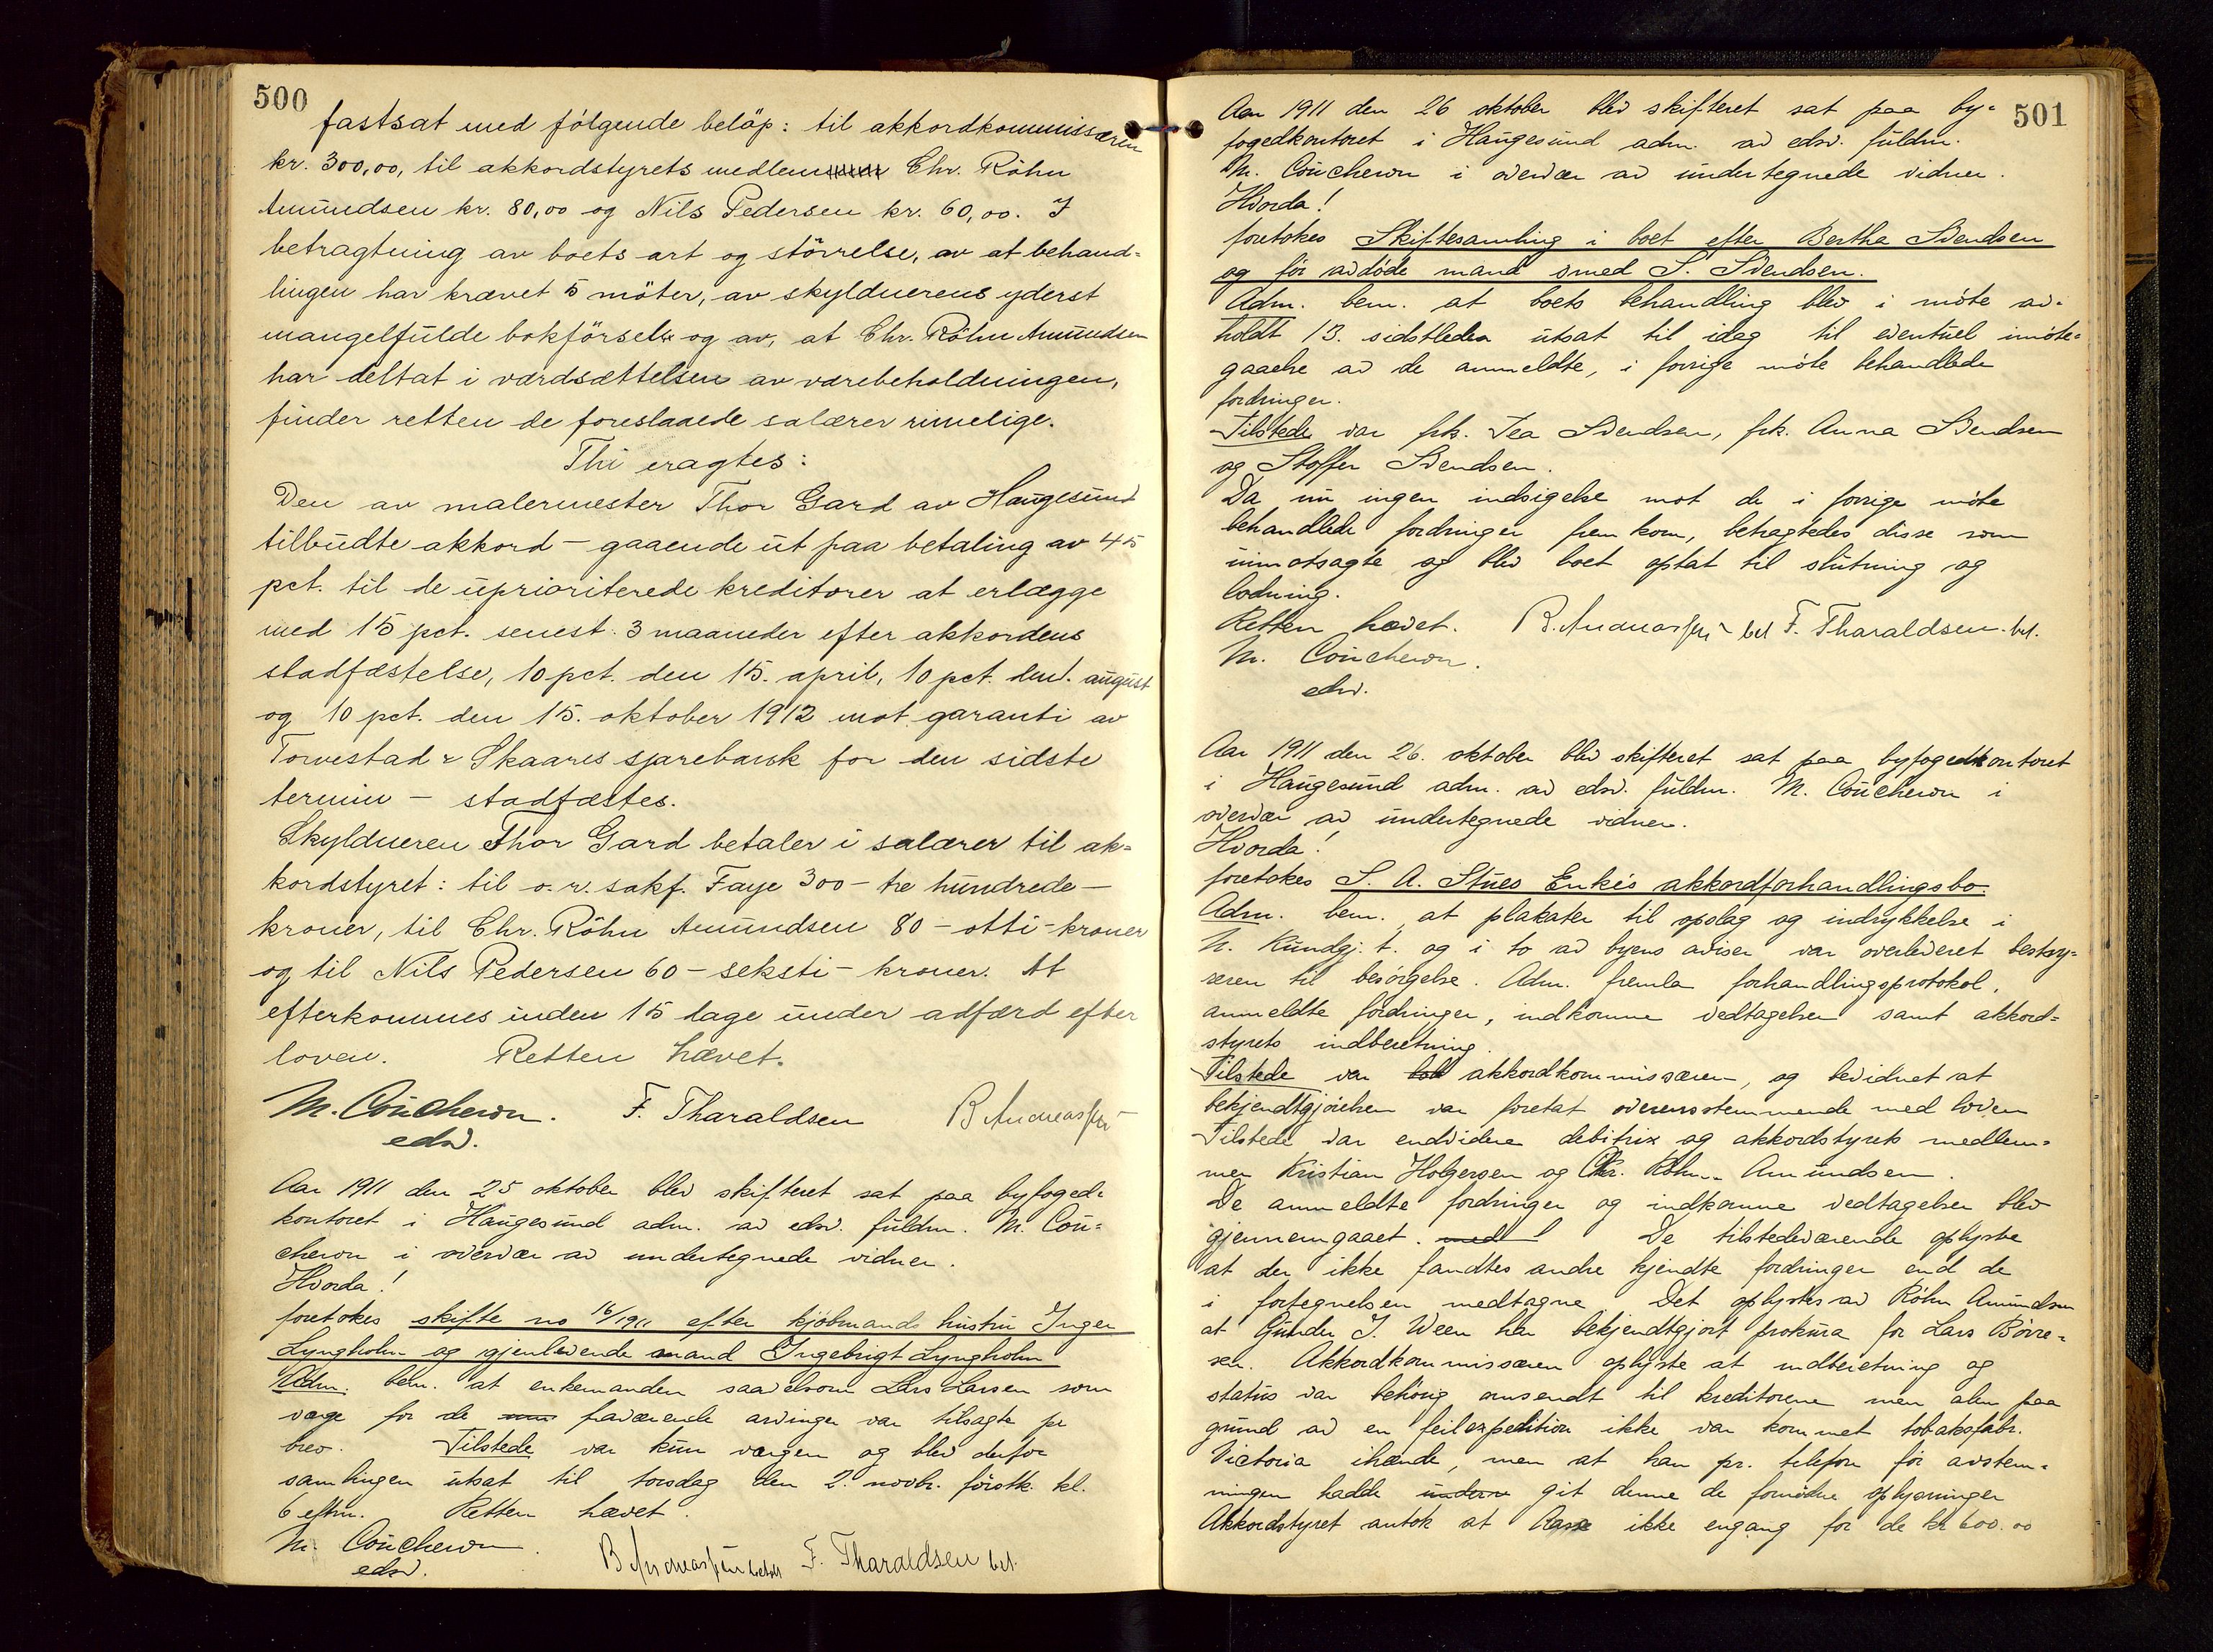 500
fastsat med følgende beløp: til akkordkommissæren
kr. 300,00, til akkordstyrets medlem Chr. Röhn
Amundsen kr. 80,00 og Nils Pedersen kr. 60,00. I
betragtning av boets art og störrelse, av at behand=
lingen har krævet 5 möter, av skyldnerens yderst
mangelfulde bokförsel og av, at Chr. Röhn Amundsen
har deltat i værdsættelsen av varebeholdningen,
finder retten de foreslaaede salærer rimelige.
Thi eragtes:
Den av malermester Thor Gard av Haugesund
tilbudte akkord – gaaende ut paa betaling av 45
pct. til de uprioriterede kreditorer at erlægge
med 15 pct. senest 3 maaneder efter akkordens
stadfæstelse, 10 pct. den 15. april, 10 pct. den 1. august
og 10 pct. den 15. oktober 1912 mot garanti av
Torvestad & Skaares sparebank for den sidste
termin – stadfæstes.
Skyldneren Thor Gard betaler i salærer til ak=
kordstyret: til o.r. sakf. Faye 300 – tre hundrede –
kroner, til Chr. Röhn Amundsen 80 – otti – kroner
og til Nils Pedersen 60 – seksti – kroner. At
efterkommes inden 15 dage under adfærd efter
loven. Retten hævet.
M. Coucheron. F. Tharaldsen B Andreassen
edsv.
Aar 1911 den 25 oktober blev skifteret sat paa byfoged=
kontoret i Haugesund adm. av edsv. fuldm. M. Cou=
cheron i overvær av undertegnede vidner.
Hvorda!
foretokes skifte no 16/1911 efter kjøbmands hustru Inger
Lyngholm og gjenlevende mand Ingebrigt Lyngholm
Adm. bem. at enkemanden saavelsom Lars Larsen som
verge for de fraværende arvinger var tilsagte pr
brev. Tilstede var kun vergen og blev derfor
samlingen utsat til torsdag den 2. novbr. förstk. kl.
6 eftm. Retten hævet.
M. Coucheron. B Andreassen F. Tharaldsen bet.
edsv.
501
Aar 1911 den 26 oktober blev skifteret sat paa by=
fogedkontoret i Haugesund adm. av edsv. fuldm.
M. Coucheron i overvær av undertegnede vidner.
Hvorda!
foretokes Skiftesamling i boet efter Bertha Svendsen
og før avdøde mand smed S. Svendsen.
Adm. bem. at boets behandling blev i møte av=
holdt 13. sidstleden utsat til idag til eventuel imøte=
gaaelse av de anmeldte, i forrige møte behandlede
fordringer.
Tilstede var frk. Tea Svendsen, frk. Anna Svendsen
og Stoffer Svendsen.
Da nu ingen indsigelse mot de i forrige møte
behandlede fordringer fremkom, betragtedes disse som
uimotsagte og blev boet optat til slutning og
lodning.
Retten hævet. B. Andreassen bet F. Tharaldsen. bet.
M. Coucheron.
edsv.
Aar 1911 den 26. oktober blev skifteret sat paa byfogedkontoret
i Haugesund adm. av edsv. fuldm. M. Coucheron i
overvær av undertegnede vidner.
Hvorda!
foretokes S. A. Stues Enke's akkordforhandlingsbo.
Adm. bem. at plakater til opslag og indrykkelse i
N. Kundgj. t. og i to av byens aviser var overleveret bestyr=
eren til besørgelse. Adm. fremla forhandlingsprotokol,
anmeldte fordringer, indkomne vedtagelser samt akkord=
styrets indberetning.
Tilstede var akkordkommissæren, og bevidnet at
bekjendtgjørelsen var foretat overensstemmende med loven
Tilstede var endvidere debitrix og akkordstyrets medlem=
mer Kristian Holgersen og Chr. Röhn Amundsen.
De anmeldte fordringer og indkomne vedtagelser blev
gjennemgaaet. De tilstedeværende oplyste
at der ikke fandtes andre kjendte fordringer end de
i fortegnelsen medtagne. Det oplystes av Röhn Amundsen
at Gunder J. Ween har bekjendtgjort prokura for Lars Børre=
sen. Akkordkommissæren oplyste at indberetning og
status var behørig omsendt til kreditorene men alene paa
grund av en feilexpedition ikke var kommet tobaksfabr.
Victoria ihænde, men at han pr. telefon før avstem=
ningen hadde git denne de fornødne oplysninger
Akkordstyret antok at Aase ikke engang for de kr 600.00